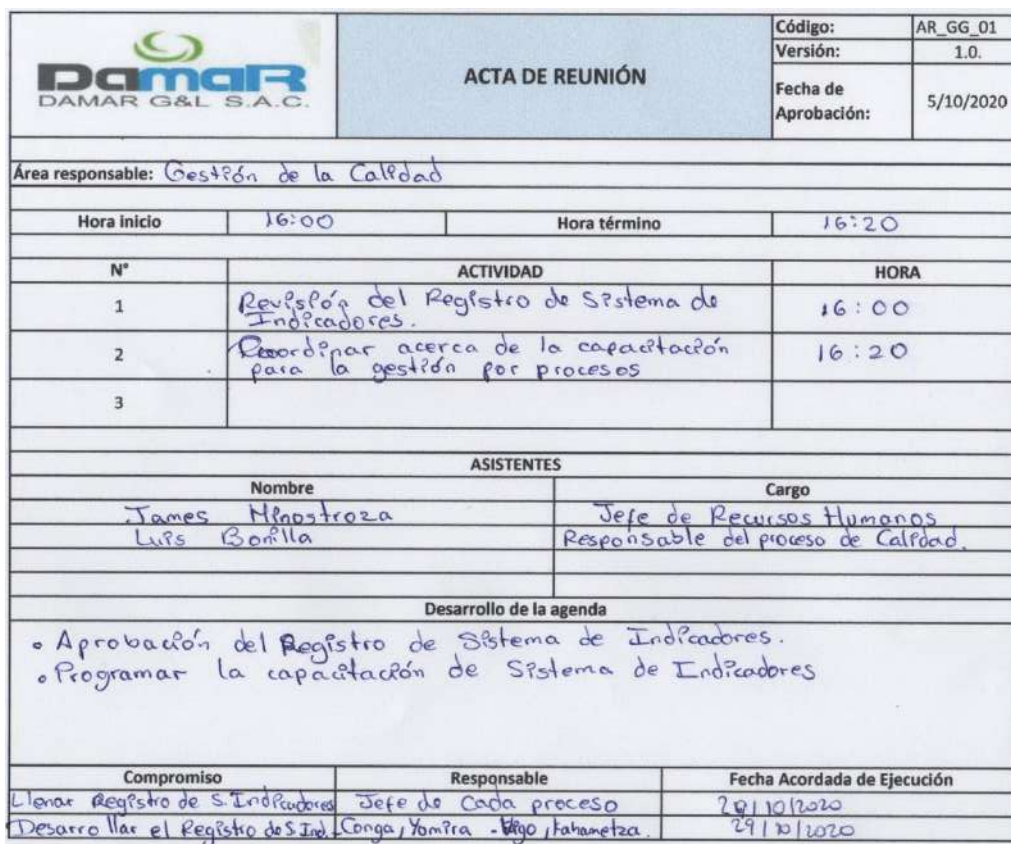 DamaR
DAMAR G&L S.A.C.
ACTA DE REUNIÓN
Código: AR_GG_01
Versión: 1.0.
Fecha de Aprobación: 5/10/2020
Área responsable: Gestión de la Calidad
Hora inicio 16:00 Hora término 16:20
N° ACTIVIDAD HORA
1 Revisión del Registro de Sistema de
Indicadores. 16:00
2 Coordinar acerca de la capacitación
para la gestión por procesos 16:20
3
ASISTENTES
Nombre Cargo
James Minostroza Jefe de Recursos Humanos
Luis Bonilla Responsable del proceso de Calidad.
Desarrollo de la agenda
• Aprobación del Registro de Sistema de Indicadores.
• Programar la capacitación de Sistema de Indicadores
Compromiso Responsable Fecha Acordada de Ejecución
Llenar Registro de S. Indicadores Jefe de Cada proceso /10/2020
Desarrollar el Registro de S. Ind. Conga, Yomira - Vigo, Kahametza. 29/10/2020